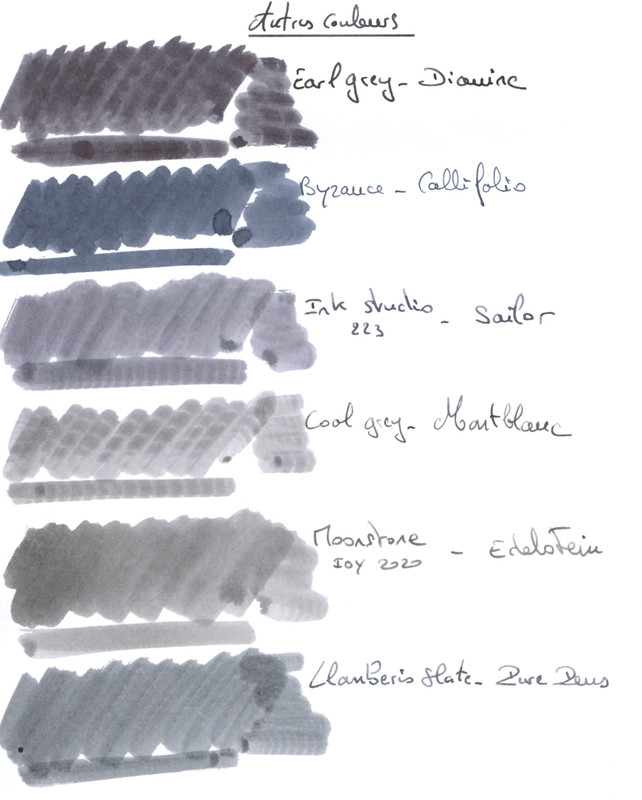 Autres couleurs
Earl grey - Diamine
Byzance - Callifolio
Ink studio - Sailor
223
Cool grey - Montblanc
Moonstone - Edelstein
IOY 2020
Llanberis Slate - Pure Pens